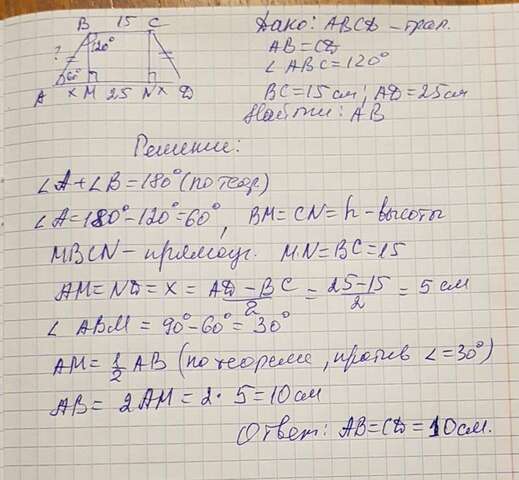 B 15 C
? 120°
60°
A x M 25 N x D
Дано: ABCD – трап.
AB = CD
∠ ABC = 120°
BC = 15 см; AD = 25 см
Найти: AB
Решение:
∠A + ∠B = 180° (по теор)
∠A = 180° – 120° = 60°, BM = CN = h – высоты
MBCN – прямоуг. MN = BC = 15
AM = ND = x = (AD – BC)/2 = (25 – 15)/2 = 5 см
∠ ABM = 90° – 60° = 30°
AM = 1/2 AB (по теореме, против ∠ = 30°)
AB = 2AM = 2 · 5 = 10 см
Ответ: AB = CD = 10 см.